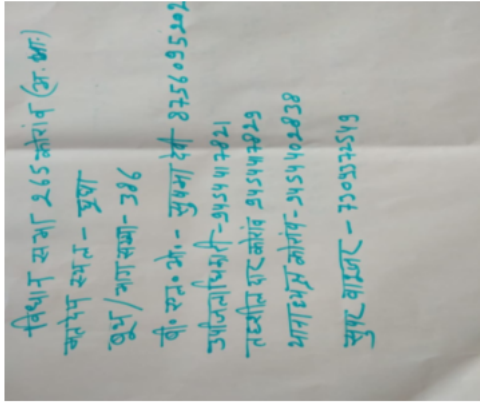 विधान सभा 265 कोरांव (अ. जा.)
मतदेय स्थल -
बूथ / भाग संख्या - 386
बी. एल. ओ. - सुषमा देवी 8756095202
उपजिलाधिकारी - 9454417821
तहसीलदार कोरांव 9454417829
थानाध्यक्ष कोरांव - 9454402838
सुपरवाइजर - 7309372549